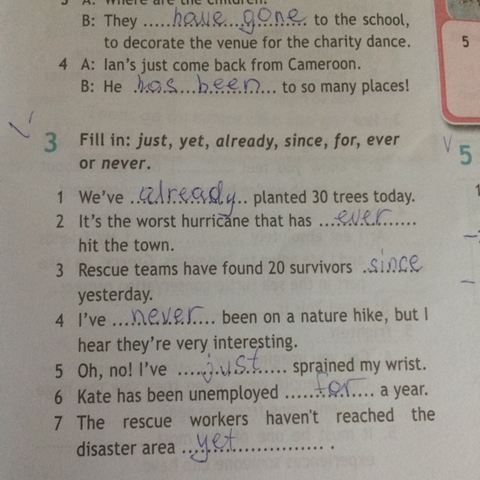 3 A: Where are the children?
B: They .....have gone..... to the school,
to decorate the venue for the charity dance.
4 A: Ian's just come back from Cameroon.
B: He .has been... to so many places!
3 Fill in: just, yet, already, since, for, ever
or never.
1 We've ...already... planted 30 trees today.
2 It's the worst hurricane that has ...ever.......
hit the town.
3 Rescue teams have found 20 survivors .since
yesterday.
4 I've ....never.... been on a nature hike, but I
hear they're very interesting.
5 Oh, no! I've .....just..... sprained my wrist.
6 Kate has been unemployed ......for.... a year.
7 The rescue workers haven't reached the
disaster area ...yet..................... .
5
5
1